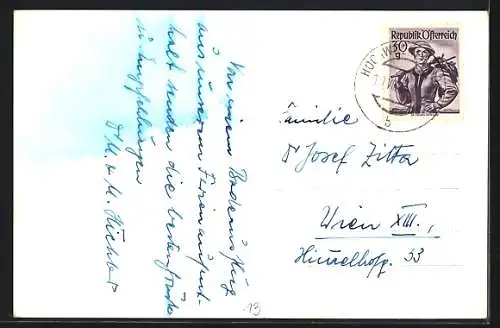 Von einem Badeausflug
aus unserem Ferienaufent-
halt senden die besten Grüße
u. Empfehlungen
Republik Österreich
30 g
HOF
b
Familie
Dr Josef Zitta
Wien XIII.,
Himmelhofg. 33
13